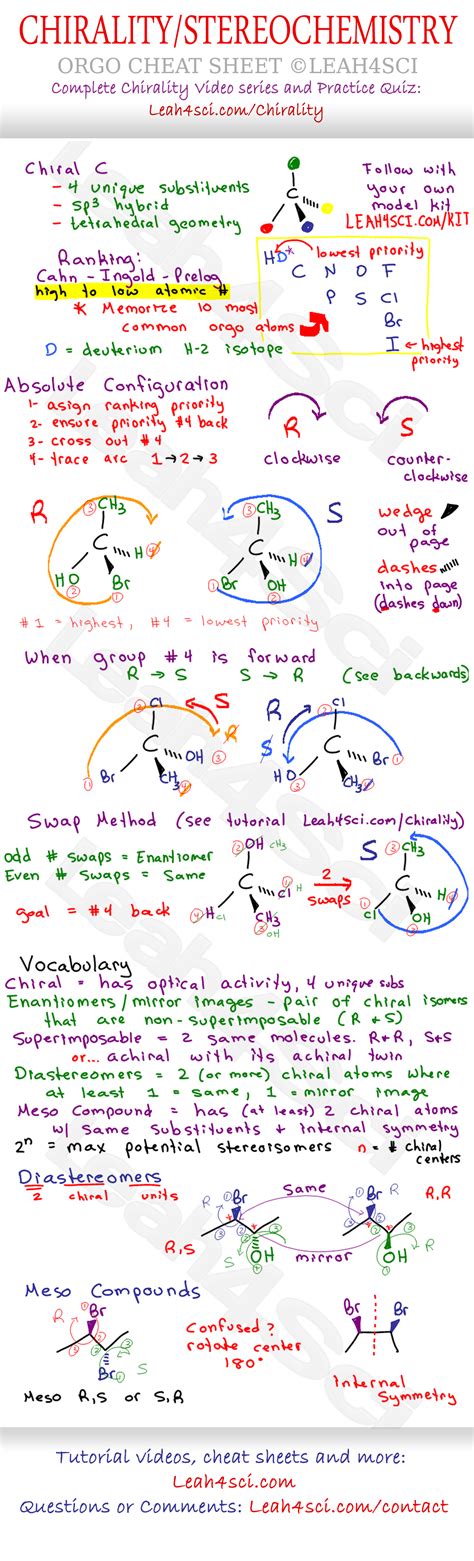 CHIRALITY/STEREOCHEMISTRY
ORGO CHEAT SHEET ©LEAH4SCI
Complete Chirality Video series and Practice Quiz:
Leah4sci.com/Chirality
Chiral C
- 4 unique substituents
- sp3 hybrid
- tetrahedral geometry
C
Follow with
your own
model kit
LEAH4SCI.COM/KIT
Ranking:
Cahn - Ingold - Prelog
high to low atomic #
* Memorize 10 most
common orgo atoms
D = deuterium H-2 isotope
HD* lowest priority
C N O F
P S Cl
Br
I ← highest
priority
Absolute Configuration
1- asign ranking priority
2- ensure priority #4 back
3- cross out #4
4- trace arc 1→2→3
R
clockwise
S
counter-
clockwise
R
3 CH3
C
H 4
HO
2
Br
1
3 CH3
C
H 4
1 Br
OH
2
S
wedge
out of
page
dashes
into page
(dashes down)
#1 = highest, #4 = lowest priority
When group #4 is forward
R → S S → R (see backwards)
2 Cl
C
OH
3
1 Br
CH3 4
S
R
R
S
2 Cl
C
Br 1
HO
3
CH3 4
Swap Method (see tutorial Leah4sci.com/Chirality)
odd # swaps = Enantiomer
Even # Swaps = Same
goal = #4 back
2 OH CH3
C
1 Cl H
4 H Cl
CH3
3 OH
2
swaps
S
3 CH3
C
H 4
1
Cl
OH
2
Vocabulary
Chiral = has optical activity, 4 unique subs
Enantiomers/mirror images - pair of chiral isomers
that are non-superimposable (R & S)
Superimposable = 2 same molecules. R&R, S&S
or... achiral with its achiral twin
Diastereomers = 2 (or more) chiral atoms where
at least 1 = same, 1 = mirror image
Meso Compound = has (at least) 2 chiral atoms
w/ same substituents + internal symmetry
2n = max potential stereoisomers n = # chiral
centers
Diastereomers
2 chiral units
R,S
R Br
OH
S
same
mirror
R Br
OH
R
R,R
Meso Compounds
R
Br
Br
S
Meso R,S or S,R
Confused?
rotate center
180°
Br Br
Internal
Symmetry
Tutorial videos, cheat sheets and more:
Leah4sci.com
Questions or Comments: Leah4sci.com/contact